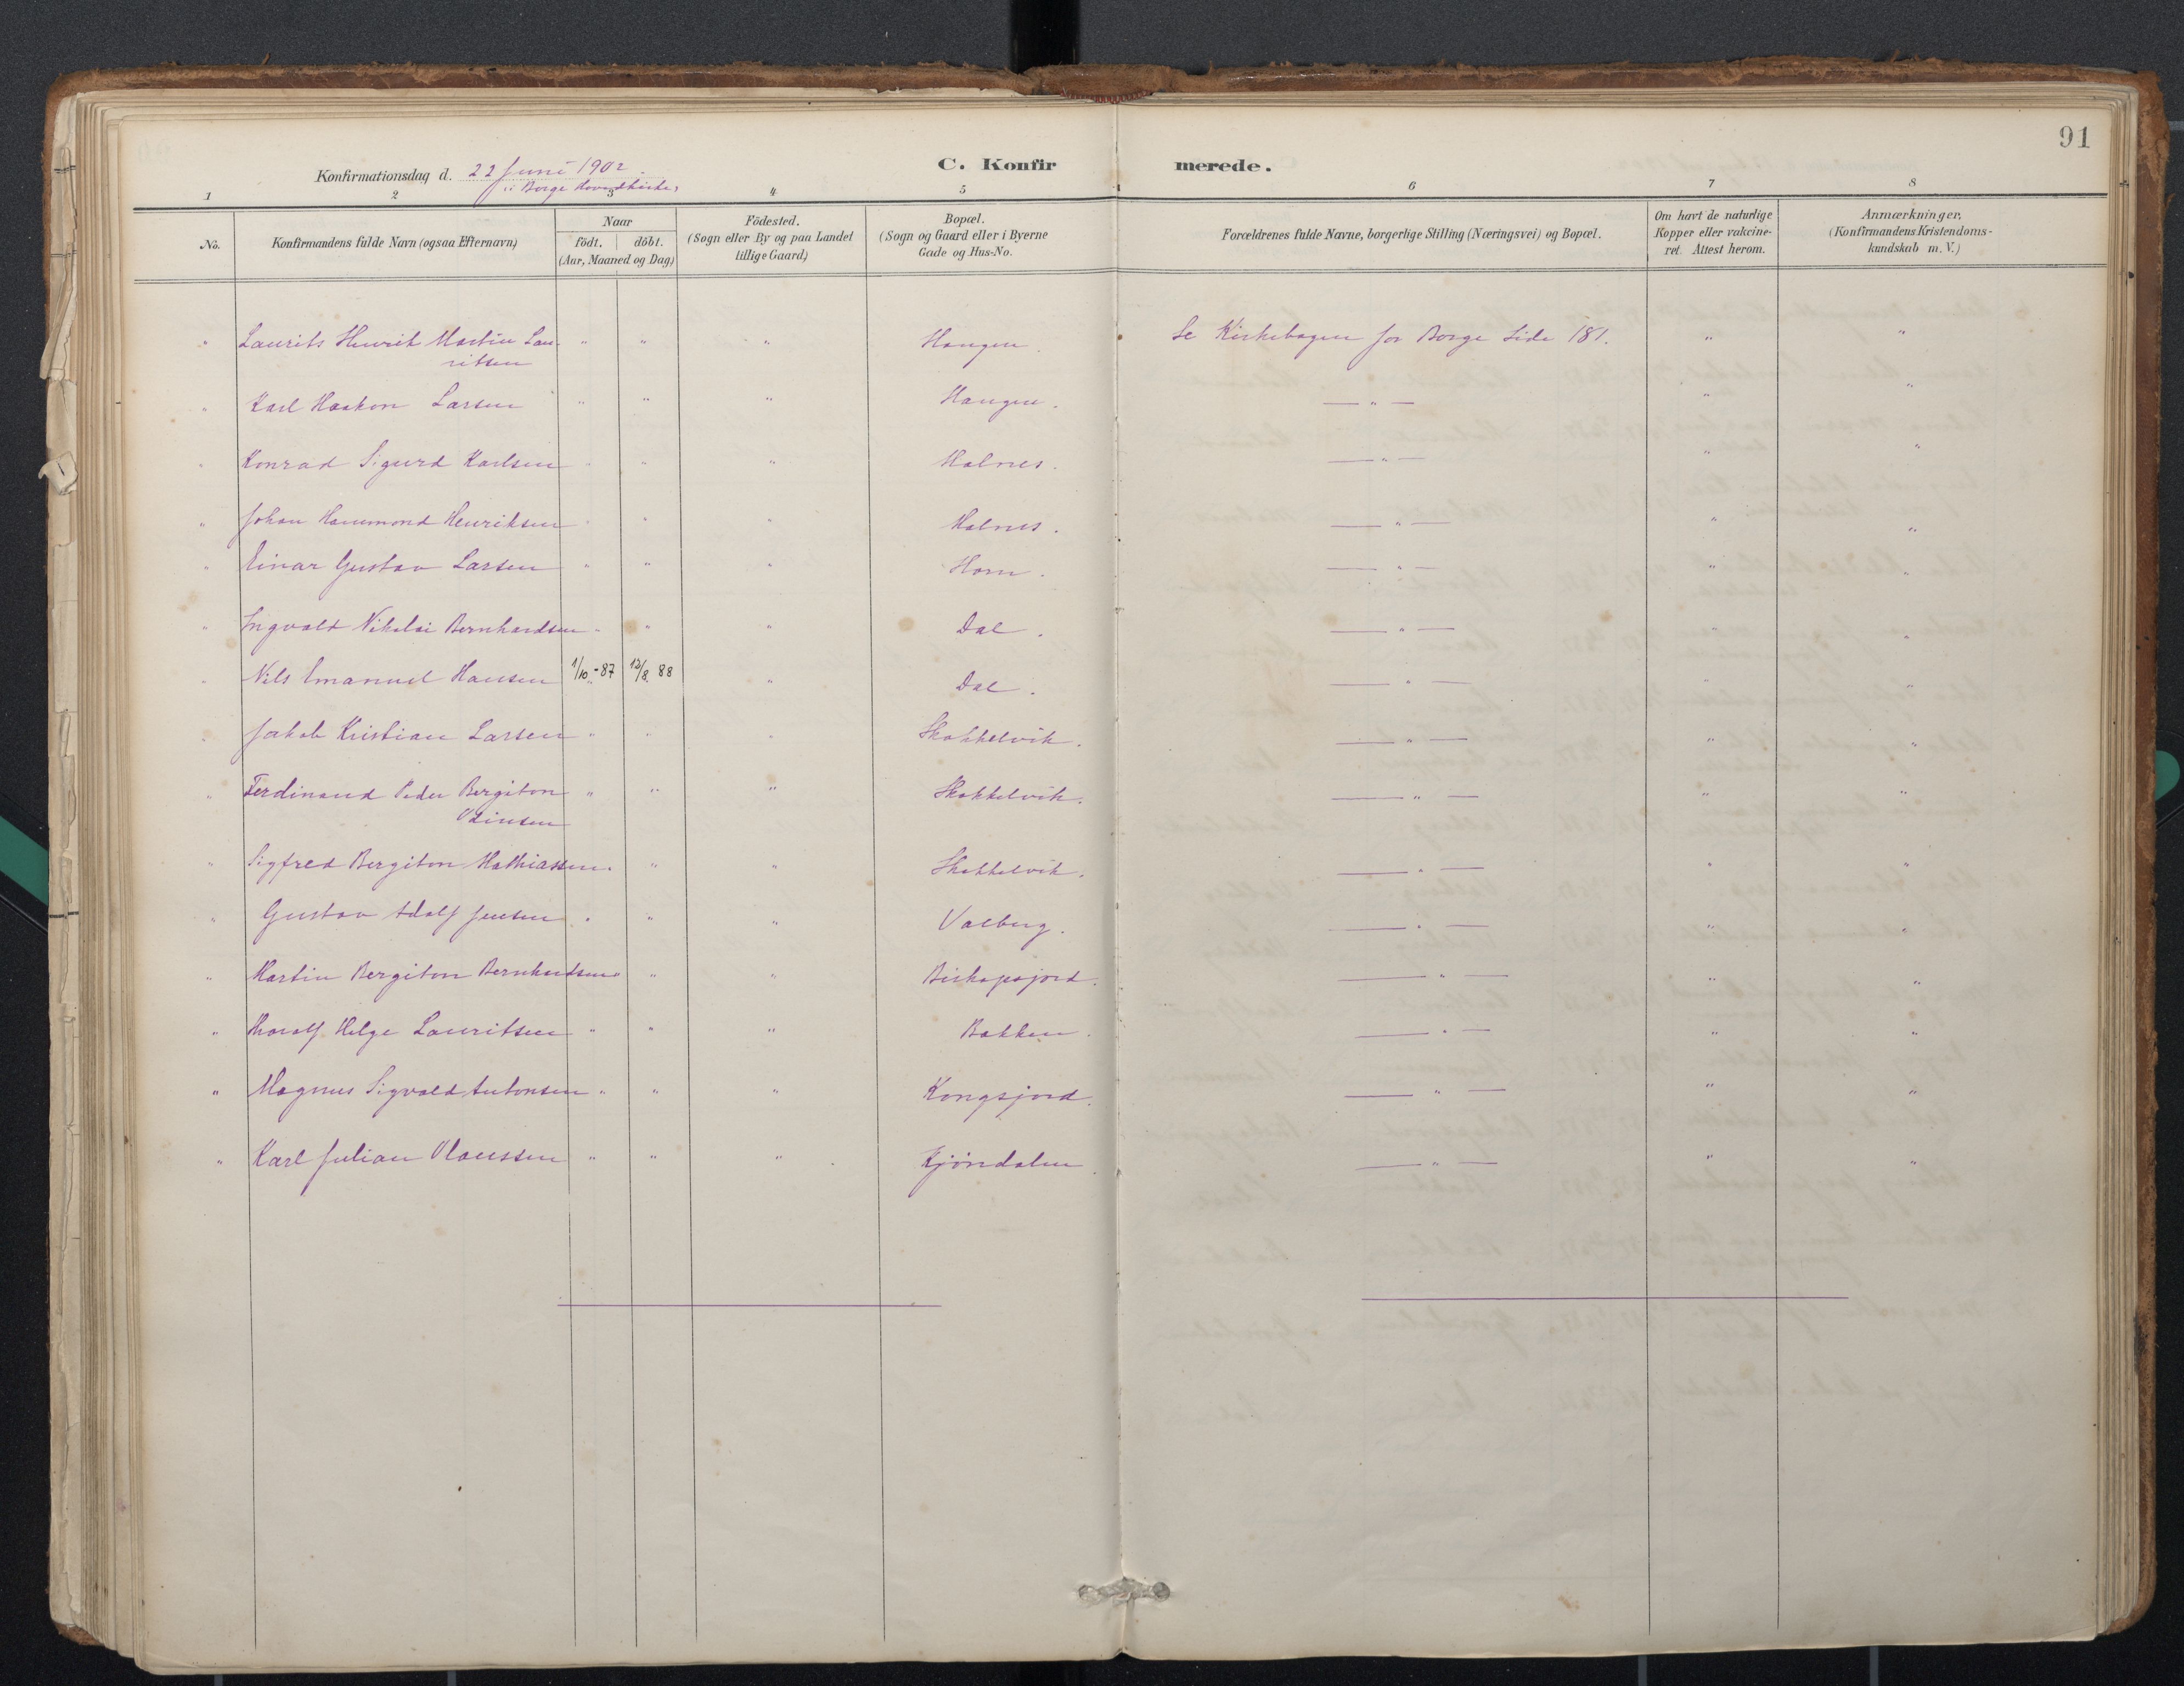 91
Konfirmationsdag d. 22 Juni 1902.
i Borge Hovedkirke,
C. Konfirmerede.
1 2 3 4 5 6 7 8
No.
Konfirmandens fulde Navn (ogsaa Efternavn)
Naar
födt. döbt.
(Aar, Maaned og Dag)
Födested.
(Sogn eller By og paa Landet
tillige Gaard)
Bopæl.
(Sogn og Gaard eller i Byerne
Gade og Hus-No.
Forældrenes fulde Navne, borgerlige Stilling (Næringsvei) og Bopæl.
Om havt de naturlige
Kopper eller vakcine-
ret. Attest herom.
Anmærkninger.
(Konfirmandens Kristendoms-
kundskab m. V.)
" Laurits Henrik Martin Lau- " " " Haugen. Se Kirkebogen for Borge Side 181. " "
ritsen
" Karl Haakon Larsen " " " Haugen. — " — " "
" Konrad Sigurd Karlsen " " " Halnes. — " — " "
" Johan Hammond Henriksen " " " Halnes. — " — " "
" Einar Gustav Larsen " " " Horn. — " — " "
" Ingvald Nikolai Bernhardsen " " " Dal. — " — " "
" Nils Emanuel Hansen 1/10 - 87 12/8 88 " Dal. — " — " "
" Jakob Kristian Larsen " " " Skokkelvik. — " — " "
" Ferdinand Peder Bergiton " " " Skokkelvik. — " — " "
" Sigfred Bergiton Mathiassen. " " Skokkelvik. — " — " "
" Gustav Adolf Jensen " " " Valberg. — " — " "
" Martin Bergiton Bernhardsen " " " Biskopsjord. — " — " "
" Thoralf Helge Lauritsen " " " Bakken. — " — " "
" Magnus Sigvald Antonsen " " " Kongsjord. — " — " "
" Karl Julian Olaussen " " " Kjöndalen. — " — " "